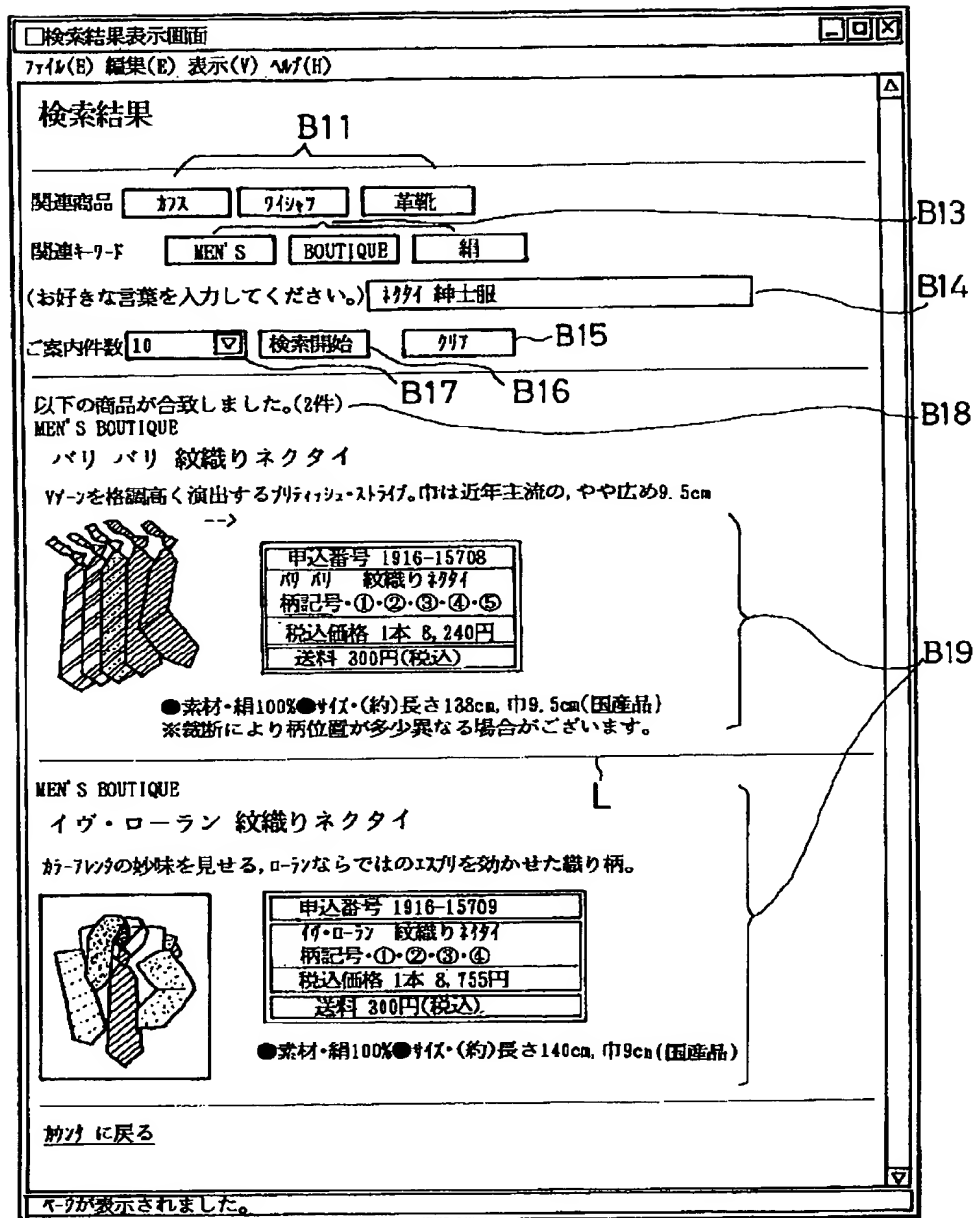 □検索結果表示画面
ﾌｧｲﾙ(E) 編集(E) 表示(V) ﾍﾙﾌﾟ(H)
検索結果
B11
関連商品 ｶﾌｽ ﾜｲｼｬﾂ 革靴
B13
関連ｷｰﾜｰﾄﾞ MEN'S BOUTIQUE 絹
(お好きな言葉を入力してください。) ﾈｸﾀｲ 紳士服
B14
ご案内件数 10 検索開始 ｸﾘｱ
B15
B17 B16
以下の商品が合致しました。(2件)
B18
MEN'S BOUTIQUE
バリ バリ 紋織りネクタイ
Vｿﾞｰﾝを格調高く演出するﾌﾞﾘﾃｨｯｼｭ・ｽﾄﾗｲﾌﾟ。巾は近年主流の,やや広め9.5cm
-->
申込番号 1916-15708
ﾊﾞﾘ ﾊﾞﾘ 紋織りﾈｸﾀｲ
柄記号・①・②・③・④・⑤
税込価格 1本 8,240円
送料 300円(税込)
B19
●素材・絹100%●ｻｲｽﾞ・(約)長さ138cm,巾9.5cm(国産品)
※裁断により柄位置が多少異なる場合がございます。
L
MEN'S BOUTIQUE
イヴ・ローラン 紋織りネクタイ
ｶﾗｰﾌﾞﾚﾝﾀﾞの妙味を見せる,ﾛｰﾗﾝならではのｴｽﾌﾟﾘを効かせた織り柄。
申込番号 1916-15709
ｲｳﾞ・ﾛｰﾗﾝ 紋織りﾈｲﾀｲ
柄記号・①・②・③・④
税込価格 1本 8,755円
送料 300円(税込)
●素材・絹100%●ｻｲｽﾞ・(約)長さ140cm,巾9cm(国産品)
ｶｳﾝﾀ に戻る
ﾍﾟｰｼﾞが表示されました。